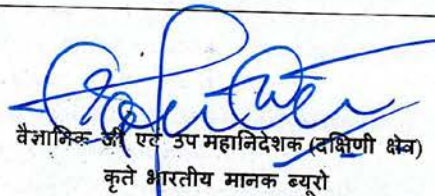 वैज्ञानिक जी एवं उप महानिदेशक (दक्षिणी क्षेत्र)
कृते भारतीय मानक ब्यूरो